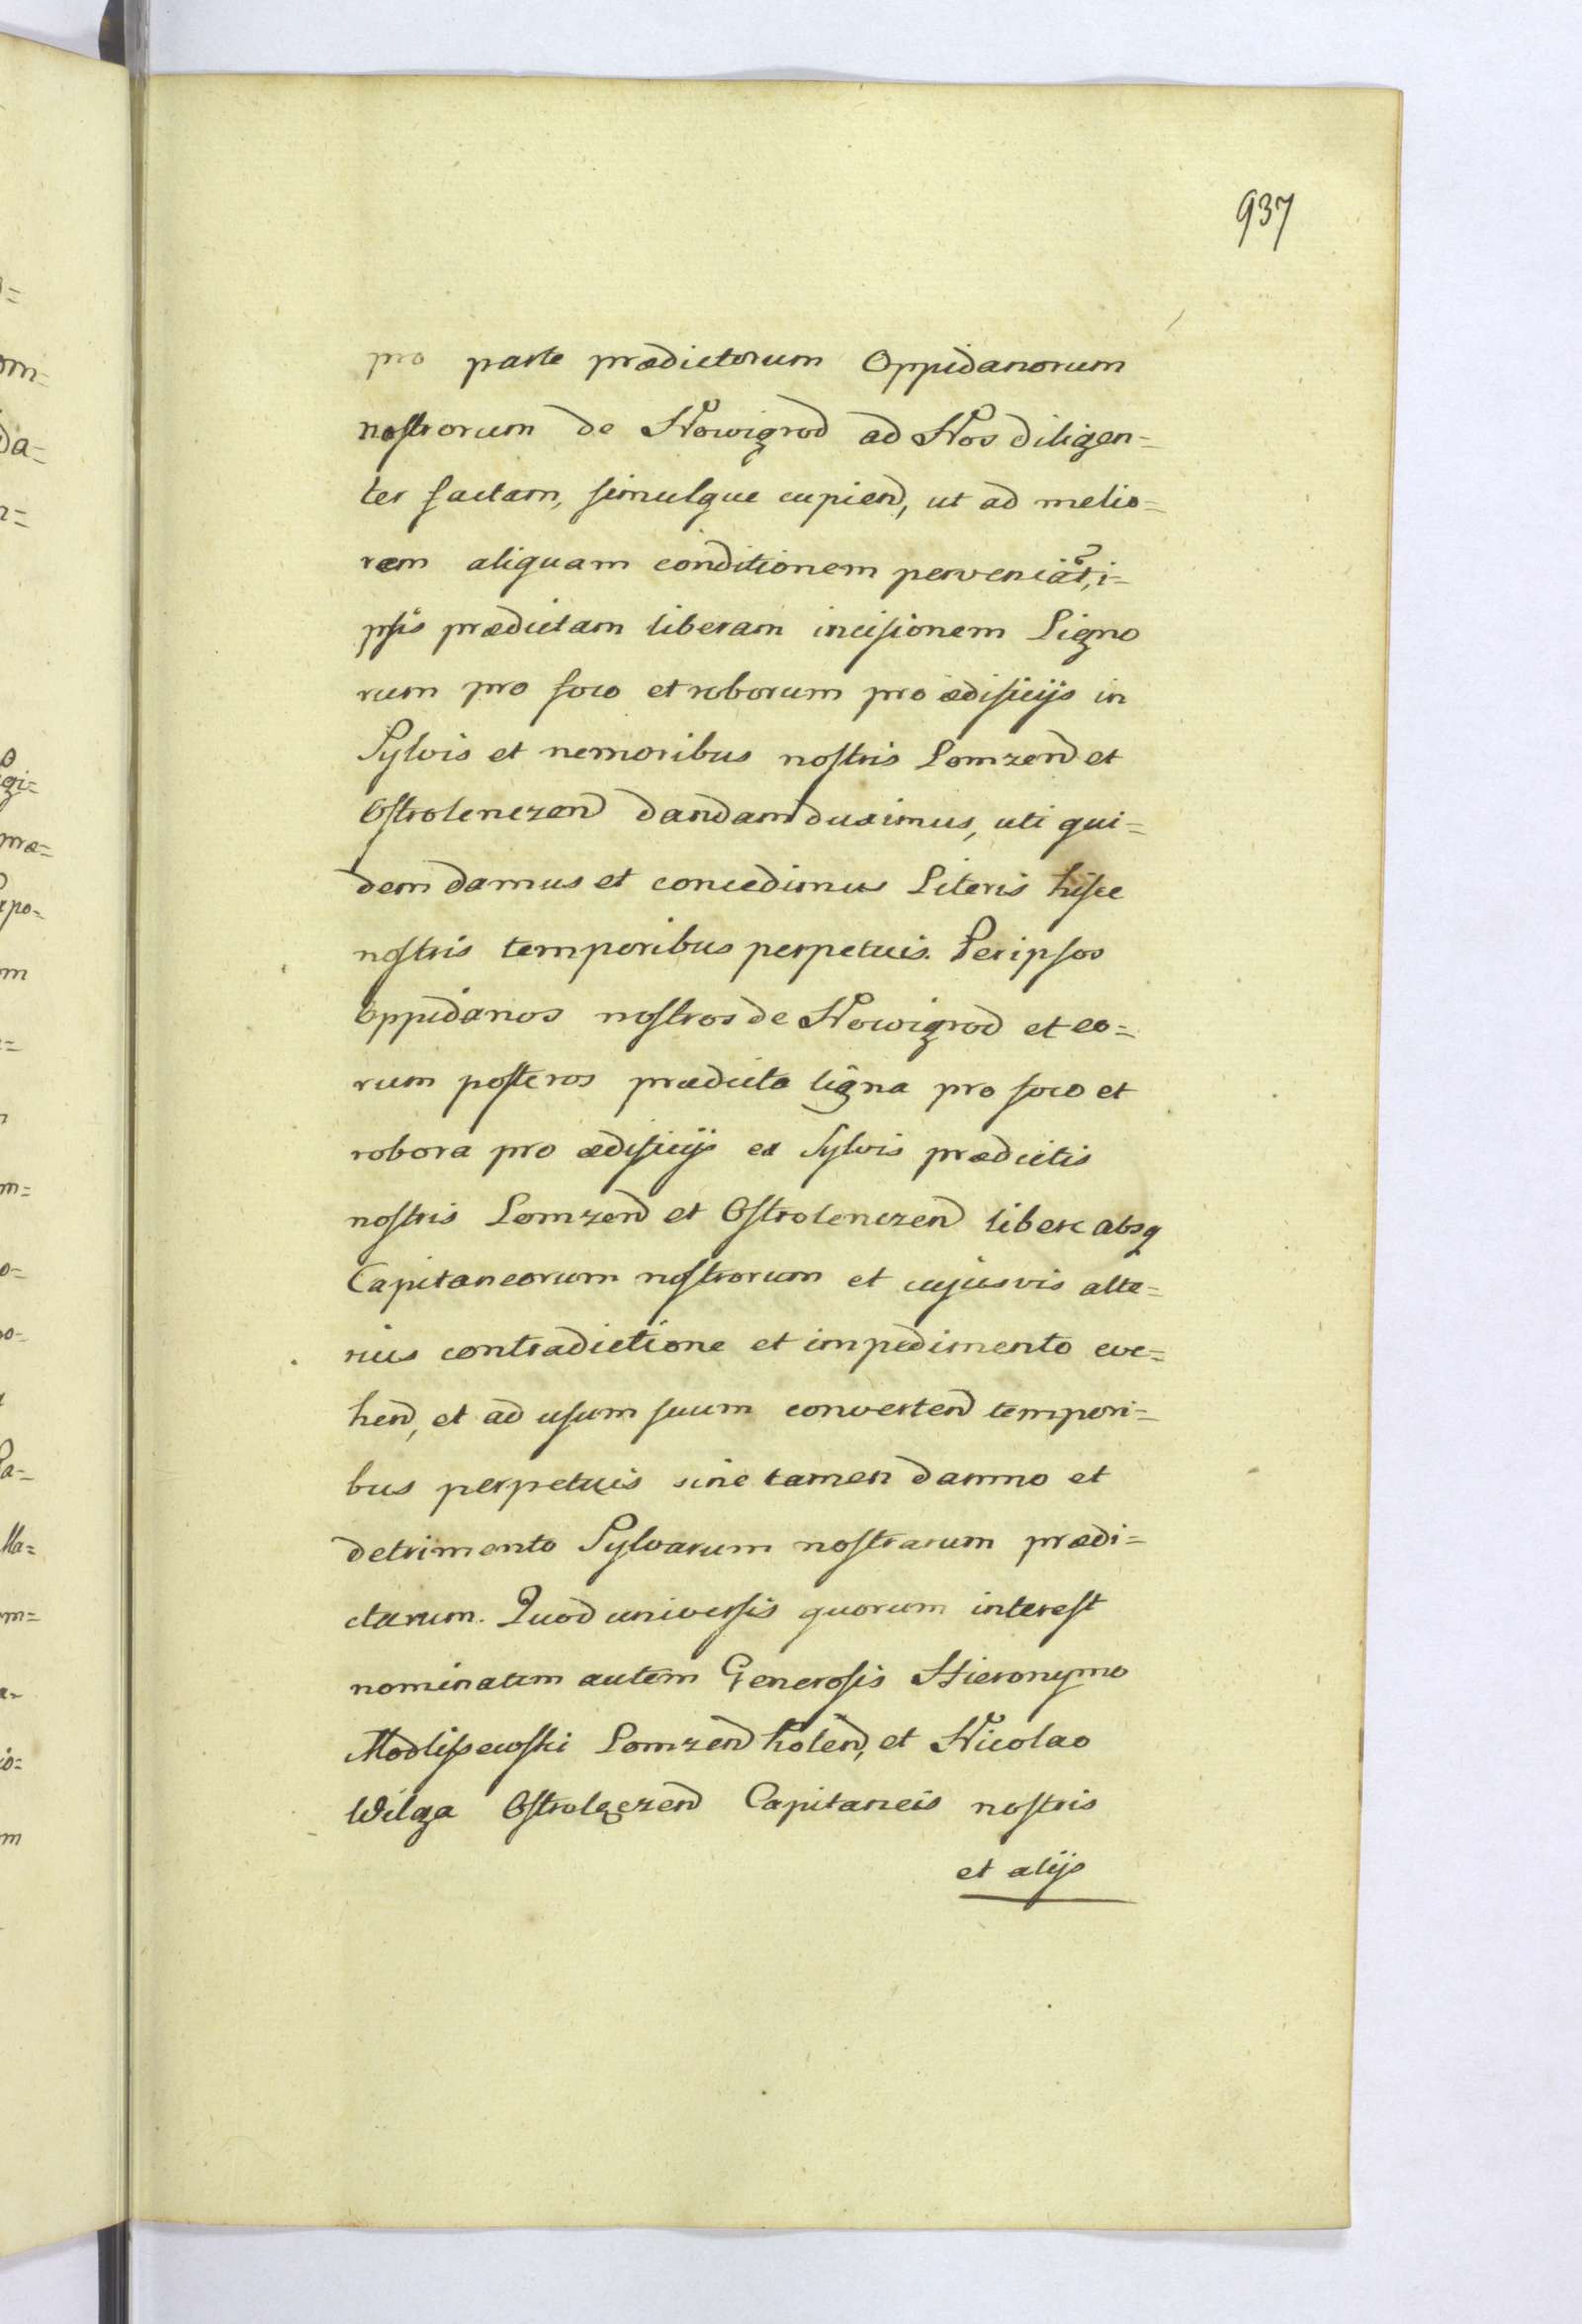 937
pro parte prædictorum Oppidanorum
nostrorum de Nowigrod ad Nos diligen=
ter factam, simulque cupiend, ut ad melio=
rem aliquam conditionem perveniāt, i=
psis prædictam liberam incisionem Ligno
rum pro foco et roborum pro ædificijs in
Sylvis et nemoribus nostris Lomzend et
Ostrolenczend dandam duximus, uti qui=
dem damus et concedimus Literis hisce
nostris temporibus perpetuis. Per ipsos
Oppidanos nostros de Nowigrod et eo=
rum posteros prædicta ligna pro foco et
robora pro ædificijs ex Sylvis prædictis
nostris Lomzend et Ostrolenczend libere absq
Capitaneorum nostrorum et cujusvis alte=
rius contradictione et impedimento eve=
hend, et ad usum suum convertend tempori=
bus perpetuis sine tamen damno et
detrimento Sylvarum nostrarum prædi=
ctarum. Quod universis quorum interest
nominatim autem Generosis Hieronymo
Modliszewski Lomzend Kolend, et Nicolao
Wilga Ostrolęczend Capitaneis nostris
et alijs